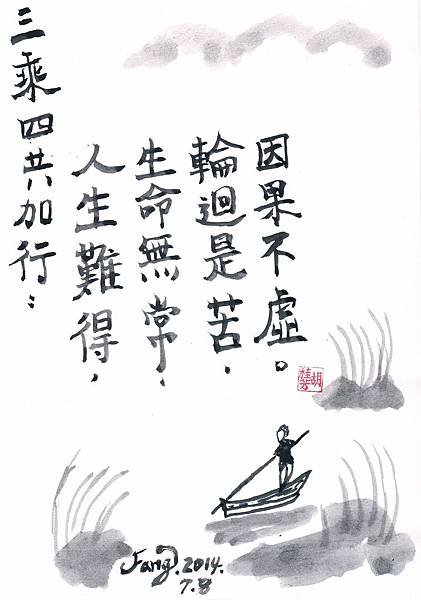 三乘四共加行：
人生難得，
生命無常、
輪迴是苦，
因果不虛。
Fang. 2014.
7.8